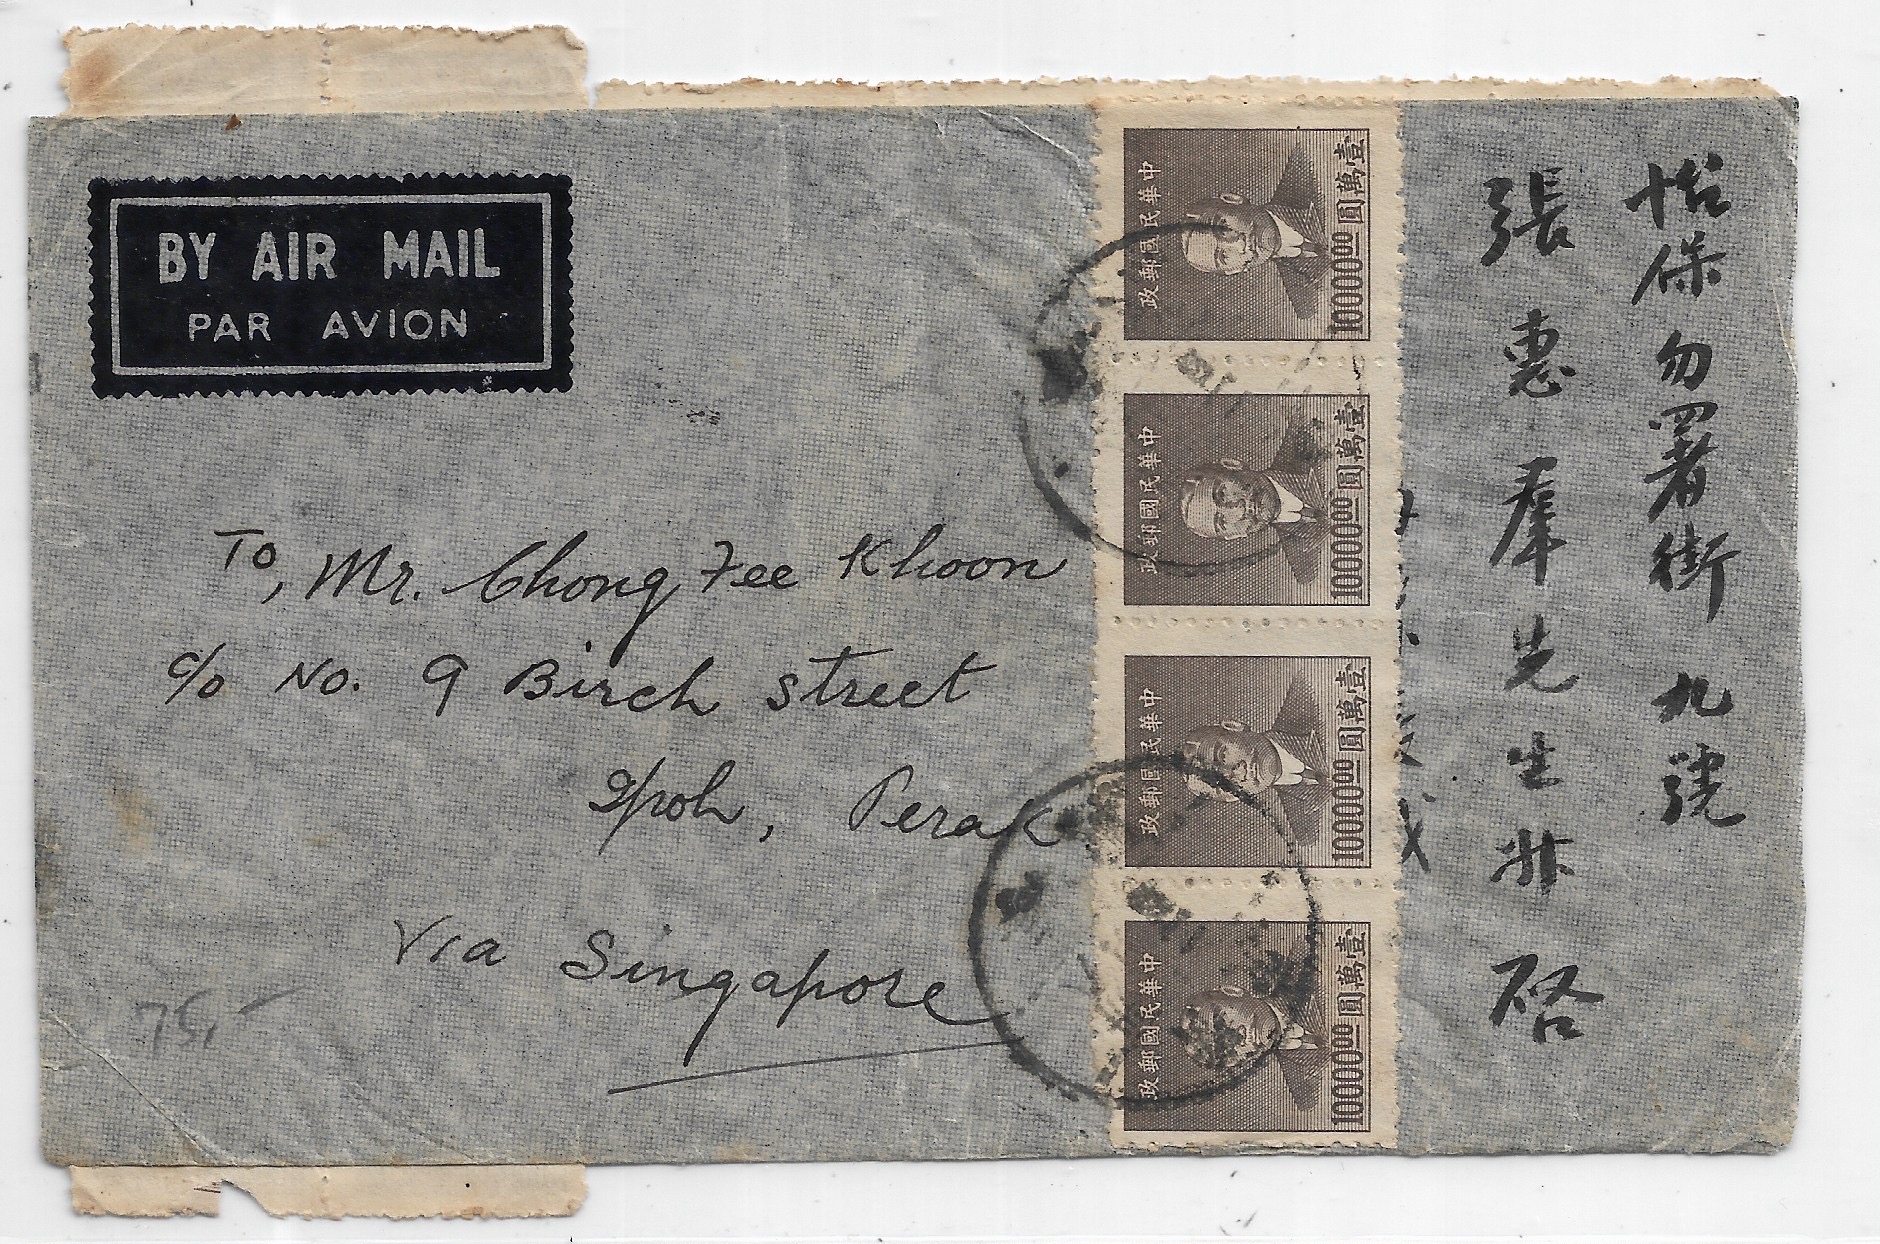 BY AIR MAIL
PAR AVION
To, Mr. Chong Fee Khoon
c/o No. 9 Birch Street
Ipoh, Perak
Via Singapore
75,-
中華民國郵政
壹萬圓
1000000
中華民國郵政
壹萬圓
1000000
中華民國郵政
壹萬圓
1000000
中華民國郵政
壹萬圓
1000000
怡保勿署街九號
張惠羣先生升啓